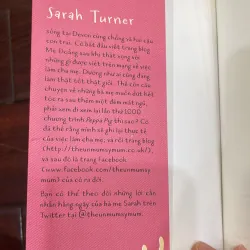 Sarah Turner
sống tại Devon cùng chồng và hai cậu
con trai. Cô bắt đầu viết trang blog
Mẹ Đoảng sau khi thất vọng với
những gì được viết trên mạng về việc
làm cha mẹ. Dường như ai cũng đang
làm thật tốt thật giỏi. Thế còn câu
chuyện về những bà mẹ muốn dứt hết
tóc ra sau thêm một đêm mất ngủ,
phải xem đi xem lại lần thứ 1000
chương trình Peppa Pig thì sao? Cô
đã thề rằng mình sẽ ghi lại thực tế
của việc làm cha mẹ, và rồi trang blog
(http://theunmumsymum.co.uk/),
và sau đó là trang Facebook
(www.facebook.com/theunmumsy
mum) của cô ra đời.
Bạn có thể theo dõi những lời cằn
nhằn hằng ngày của bà mẹ Sarah trên
Twitter tại @theunmumsymum.